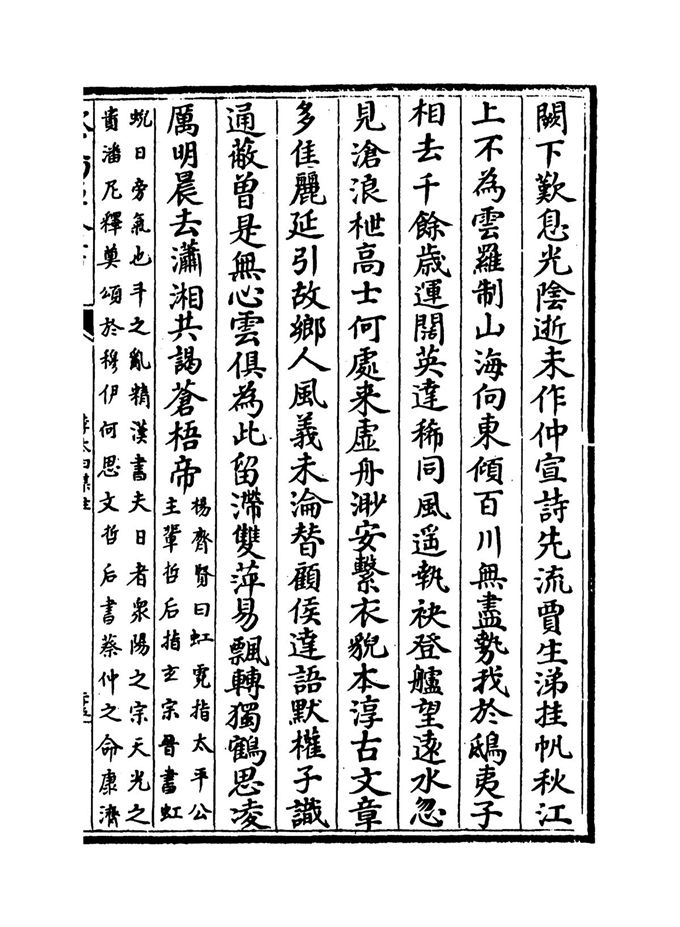 闕下歎息光陰逝未作仲宣詩先流賈生涕挂帆秋江
上不為雲羅制山海向東傾百川無盡勢我於鴟夷子
相去千餘歳運闊英達稀同風遥執袂登艫望遠水忽
見滄浪枻髙士何處来虚舟渺安繫衣貌本淳古文章
多佳麗延引故鄉人風義未淪替顧侯達語默權子識
通蔽曾是無心雲俱為此留滯雙萍易飄轉獨鶴思凌
厲明晨去瀟湘共謁蒼梧帝
楊齊賢曰虹霓指太平公
主輦哲后指玄宗晉書虹
蜺日旁氣也斗之亂精漢書夫日者衆陽之宗天光之
貴潘尼釋奠頌於穆伊何思文哲后書蔡仲之命康濟
李太白集註